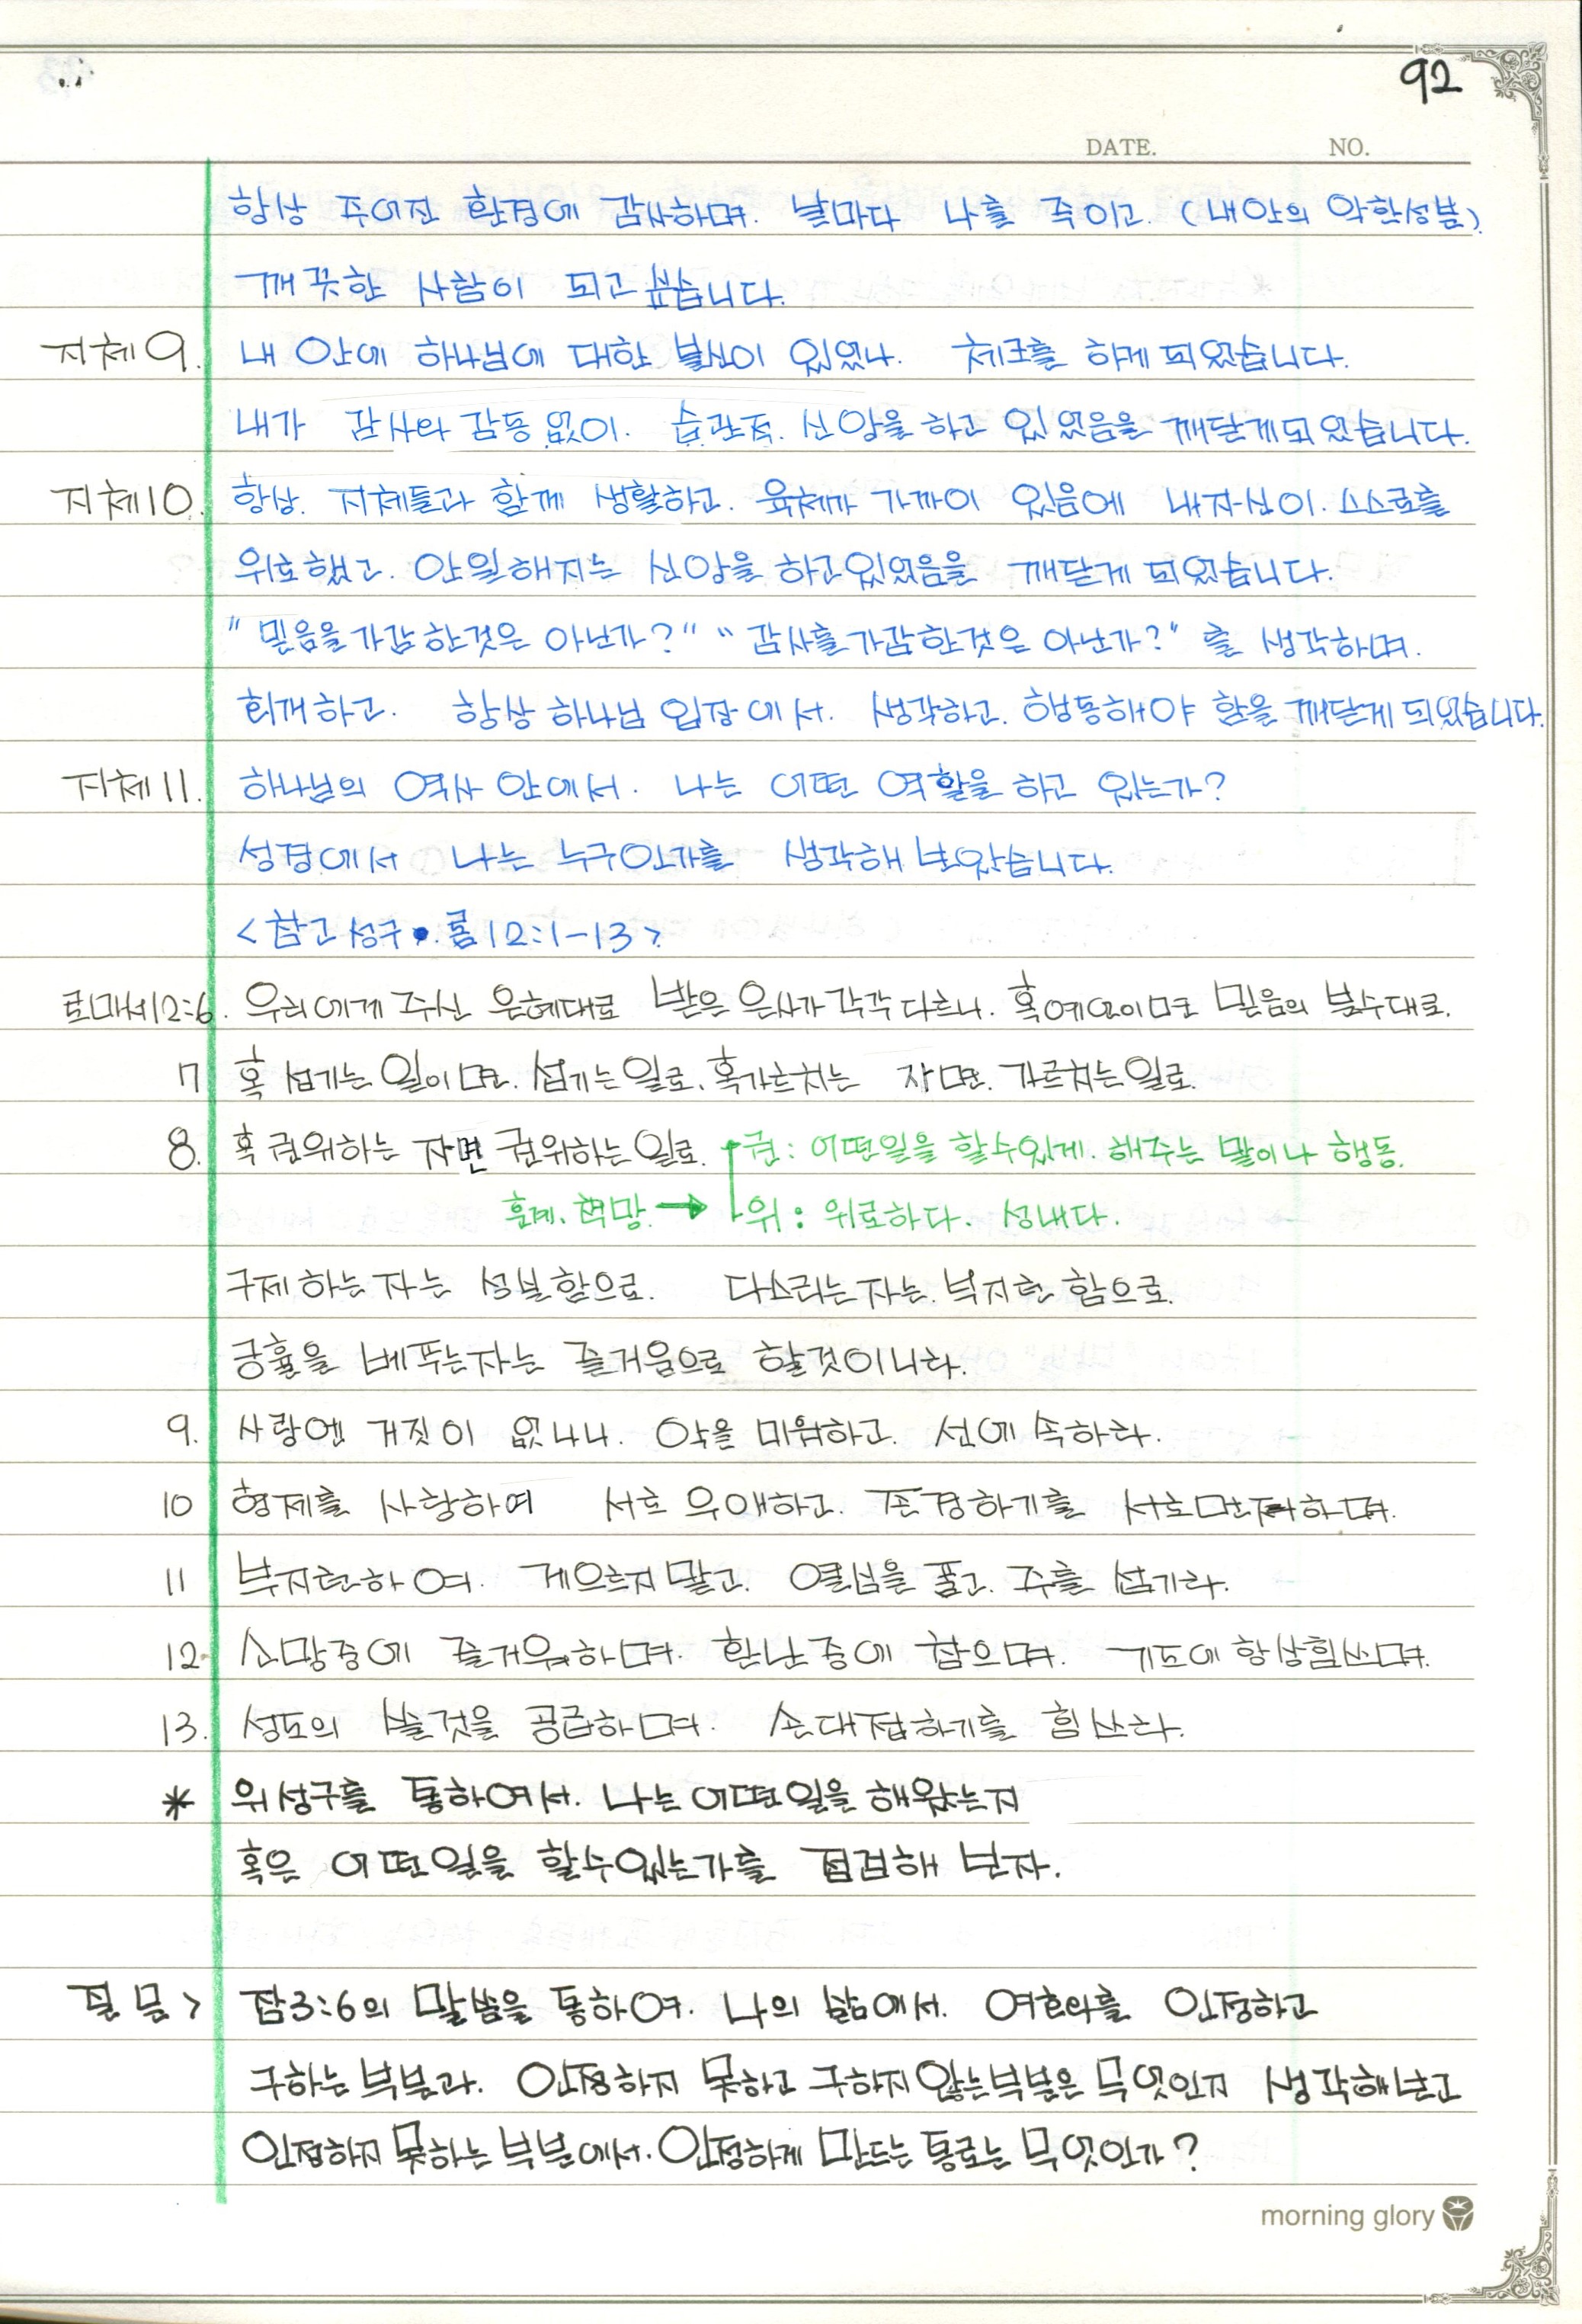 92
DATE. NO.
항상 주어진 환경에 감사하며. 날마다 나를 죽이고. (내안의 악한성분).
깨끗한 사람이 되고 싶습니다.
지체9. 내 안에 하나님에 대한 불신이 있었나. 체크를 하게 되었습니다.
내가 감사와 감동 없이. 습관적. 신앙을 하고 있었음을 깨닫게되었습니다.
지체10. 항상. 지체들과 함께 생활하고. 육체가 가까이 있음에 내자신이. 스스로를
위로했고. 안일해지는 신앙을 하고있었음을 깨닫게 되었습니다.
"믿음을가감한것은 아닌가?" "감사를가감한것은 아닌가?" 를 생각하며.
회개하고. 항상 하나님 입장에서. 생각하고. 행동해야 함을 깨닫게 되었습니다.
지체11. 하나님의 역사 안에서. 나는 어떤 역할을 하고 있는가?
성경에서 나는 누구인가를 생각해 보았습니다.
<참고성구. 롬12:1-13>
로마서12:6. 우리에게 주신 은혜대로 받은 은사가 각각 다르니. 혹예언이면 믿음의 분수대로.
7 혹 섬기는 일이면. 섬기는일로. 혹가르치는 자면. 가르치는일로.
8. 혹 권위하는 자면 권위하는 일로. 권: 어떤일을 할수있게. 해주는 말이나 행동.
훈계. 책망. → 위: 위로하다. 성내다.
구제하는자는 성실함으로. 다스리는자는. 부지런함으로.
긍휼을 베푸는자는 즐거움으로 할것이니라.
9. 사랑엔 거짓이 없나니. 악을 미워하고. 선에 속하라.
10 형제를 사랑하여 서로 우애하고. 존경하기를 서로먼저하며.
11 부지런하여. 게으르지말고. 열심을 품고. 주를 섬기라.
12. 소망중에 즐거워하며. 환난중에 참으며. 기도에 항상힘쓰며.
13. 성도의 쓸것을 공급하며. 손대접하기를 힘쓰라.
* 위성구를 통하여서. 나는 어떤일을 해왔는지
혹은 어떤일을 할수있는가를 점검해 보자.
질문> 잠3:6의 말씀을 통하여. 나의 삶에서. 여호와를 인정하고
구하는부분과. 인정하지 못하고 구하지않는부분은 무엇인지 생각해보고
인정하지못하는 부분에서. 인정하게 만드는 통로는 무엇인가?
morning glory